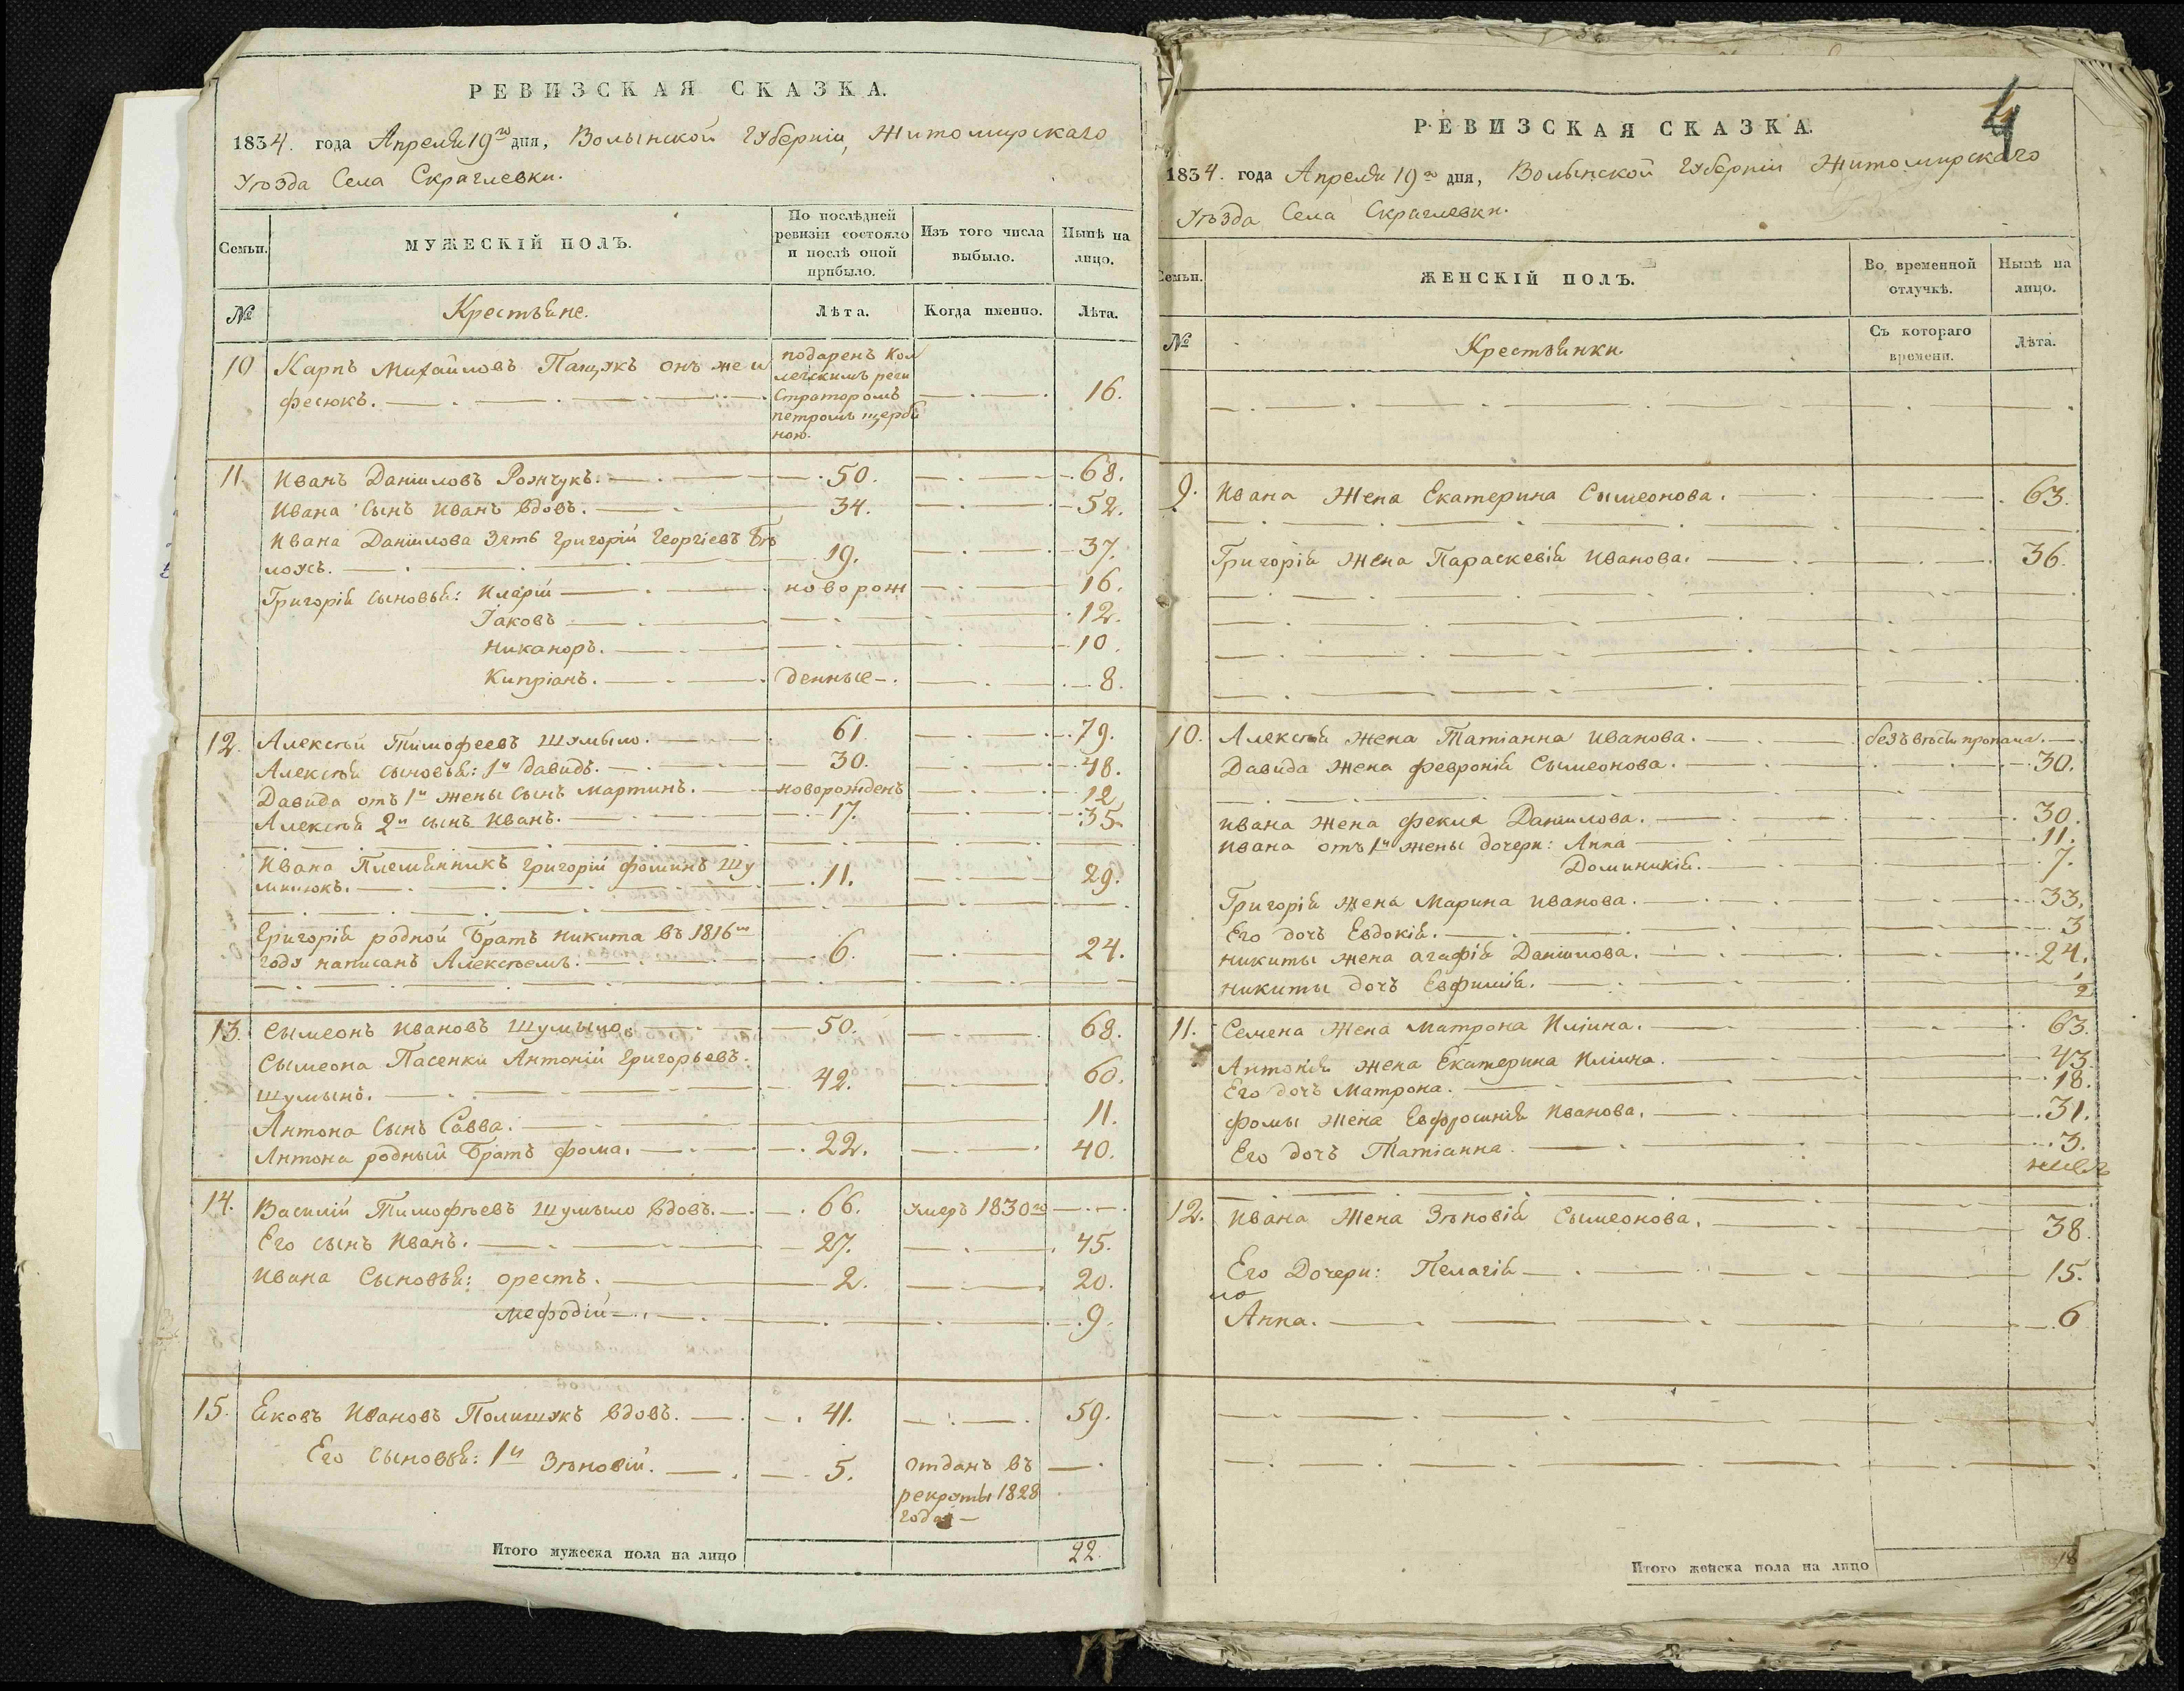 РЕВИЗСКАЯ СКАЗКА.
1834. года Апреля 19го дня, Волынской Губерніи, Житомирскаго
Уѣзда Села Скраглевки.
Семьи.
МУЖЕСКІЙ ПОЛЪ.
По послѣдней
ревизіи состояло
и послѣ оной
прибыло.
Изъ того числа
выбыло.
Нынѣ на
лицо.
№
Крестьяне.
Лѣта.
Когда именно.
Лѣта.
10 Карпъ Михайловъ Пащукъ онъ же и
фесюкъ. 16.
подаренъ Кол
лежскимъ реги
страторомъ
петромъ щерби
ною.
11. Иванъ Даніиловъ Рожчукъ. 50. 68.
Ивана сынъ Иванъ вдовъ. 34. 52.
Ивана Даніилова Зять Григорій Георгіевъ Бѣ
лоусъ. 19. 37.
Григорія сыновья: Иларій новорож 16.
Іаковъ 12.
Никаноръ. 10.
Кипріанъ. денные 8.
12. Алексѣй Тимофеевъ Шумыло. 61. 79.
Алексѣя сыновья: 1й Давидъ. 30. 48.
Давида отъ 1й жены сынъ Мартинъ. новорожденъ 12
Алексѣя 2й сынъ Иванъ. 17. 35.
Ивана Племянникъ Григорій Фоминъ Шу
милюкъ. 11. 29.
Григорія родной Братъ Никита въ 1816м
году написанъ Алексѣемъ. 6. 24.
13. Сымеонъ Ивановъ Шумыло. 50. 68.
Сымеона Пасенки Антоній Григорьевъ.
Шумыло. 42. 60.
Антона Сынъ Савва. 11.
Антона родный Братъ Фома. 22. 40.
14. Василій Тимофѣевъ Шумыло вдовъ. 66. умеръ 1830го
Его сынъ Иванъ. 27. 45.
Ивана Сыновья: орестъ. 2. 20.
Мефодій 9.
15. Яковъ Ивановъ Полищукъ вдовъ. 41. 59.
Его сыновья: 1й Зѣновій. 5. отданъ въ
рекруты 1828
года
Итого мужеска пола на лицо 22.
4
РЕВИЗСКАЯ СКАЗКА.
1834. года Апреля 19го дня, Волынской Губерніи Житомирскаго
Уѣзда Села Скраглевки.
Семьи.
ЖЕНСКІЙ ПОЛЪ.
Во временной
отлучкѣ.
Нынѣ на
лицо.
№
Крестьянки.
Съ котораго
времени.
Лѣта.
9. Ивана Жена Екатерина Сымеонова. 63.
Григорія Жена Параскевія Иванова. 36.
10. Алексѣя жена Татіанна Иванова. безъ вѣсти пропала.
Давида жена февронія Сымеонова. 30.
Ивана жена фекла Даніилова. 30.
Ивана отъ 1й жены дочери: Анна 11.
Доминикія. 7.
Григорія жена Марина Иванова. 33.
Его дочь Евдокія. 3
Никиты жена агафія Даніилова. 24.
Никиты дочь Евфимія. ½
11. Семена Жена Матрона Иліина. 63.
Антонія жена Екатерина Иліина. 43.
Его дочь Матрона. 18.
фомы жена Евфросинія Иванова. 31.
Его дочь Татіанна. 3.
12. Ивана Жена Зѣновія Сымеонова. 38.
Его Дочери: Пелагія 15.
Анна. 6
Итого женска пола на лицо 18